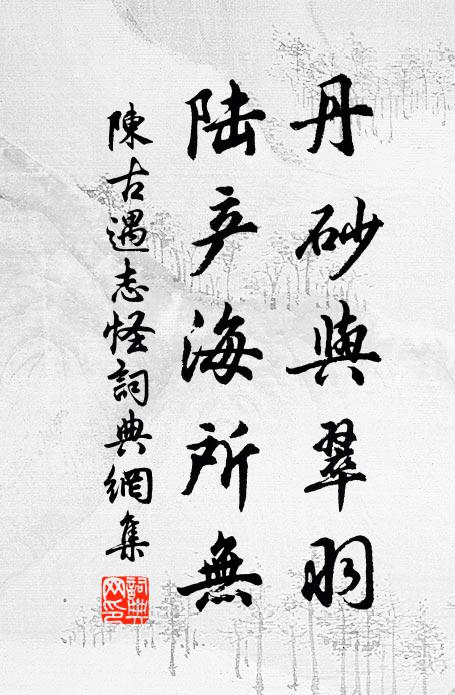 丹砂與翠羽
陆产海所無
陳古遇志怪詞典網集
詞典網印